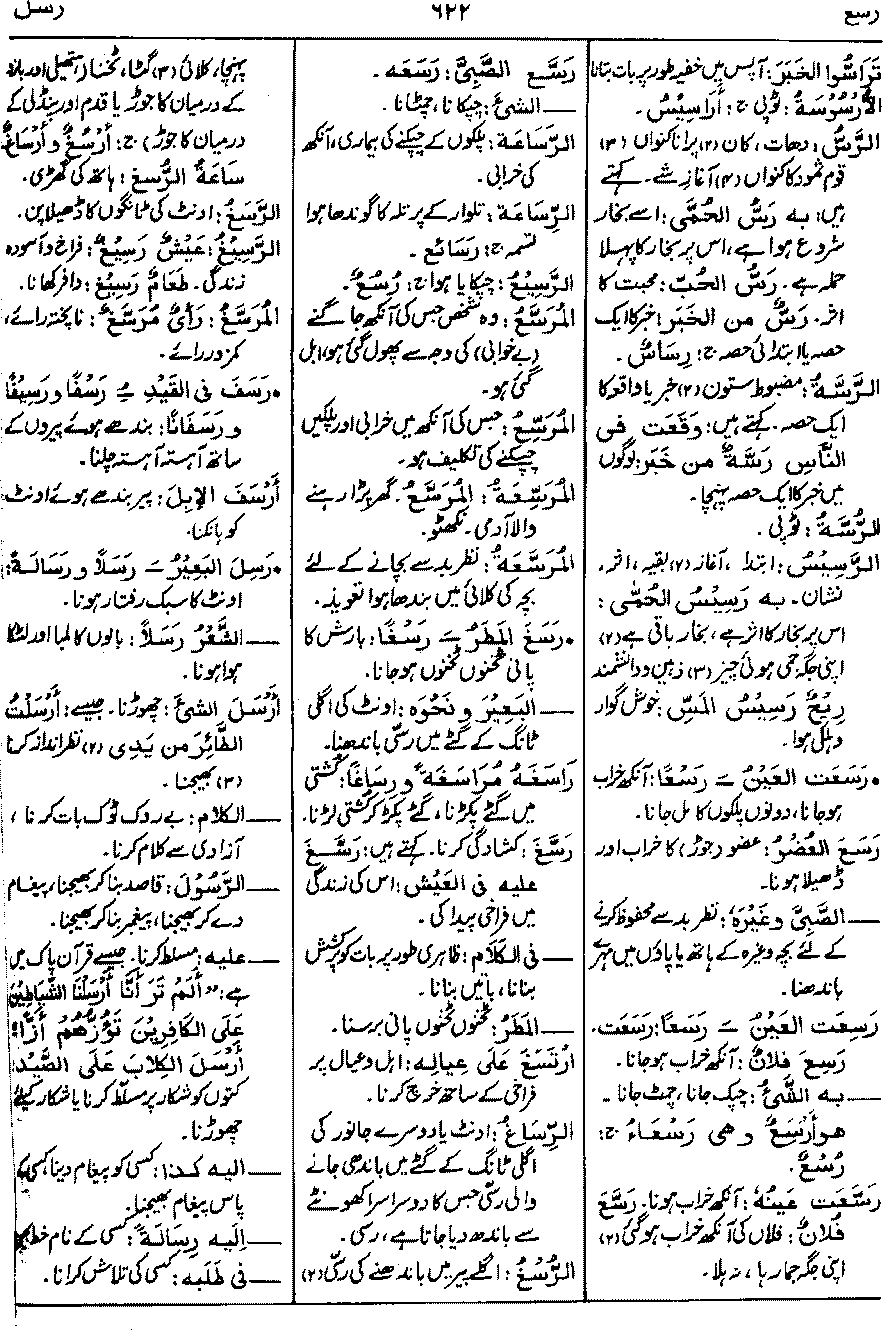 رسع
٦٢٢
رسل
تَرَاسُّوا الخَبَرَ: آپس میں خفیہ طور پر بات بتانا
الأُرْسُوسَةُ: ٹوپی ج: أَرَاسِيسُ۔
الرَّسُّ: دھات، کان (۲) پرانا کنواں (۳)
قوم ثمود کا کنواں (۴) آغاز شے۔ کہتے
ہیں: به رَسُّ الحُمَّى: اسے بخار
شروع ہوا ہے، اس پر بخار کا پہلا
حملہ ہے۔ رَسُّ الحُبِّ: محبت کا
اثر۔ رَسٌّ من الخَبَرِ: خبر کا ایک
حصہ یا ابتدائی حصہ ج: رِسَاسٌ۔
الرَّسَّةُ: مضبوط ستون (۲) خبر یا واقعہ کا
ایک حصہ۔ کہتے ہیں: وَقَعَت فى
النَّاسِ رَسَّةٌ من خَبَرٍ: لوگوں
میں خبر کا ایک حصہ پہنچا۔
الرُّسَّةُ: ٹوپی۔
الرَّسِيسُ: ابتدا، آغاز (۲) بقیہ، اثر،
نشان۔ به رَسِيسُ الحُمَّى:
اس پر بخار کا اثر ہے، بخار باقی ہے (۲)
اپنی جگہ جمی ہوئی چیز (۳) ذہین و دانشمند
رِيحٌ رَسِيسُ المَسِّ: خوش گوار
دہلی ہوا۔
• رَسَعَت العَيْنُ ــَ رَسْعًا: آنکھ خراب
ہوجانا، دونوں پلکوں کا مل جانا۔
رَسَعَ العُضْوُ: عضو (جوڑ) کا خراب اور
ڈھیلا ہونا۔
ــــ الصَّبِىَّ وغَيْرَهُ: نظر بد سے محفوظ کرنے
کے لئے بچہ وغیرہ کے ہاتھ یا پاؤں میں مہرے
باندھنا۔
رَسِعَت العَيْنُ ــَ رَسَعًا: رَسَعَت۔
رَسِعَ فلانٌ: آنکھ خراب ہوجانا۔
ــــ به الشَّئُ: چپک جانا، چمٹ جانا۔
هو أَرْسَعُ و هى رَسْعَاءُ ج:
رُسْعٌ۔
رَسَّعَت عَينُهُ: آنکھ خراب ہونا۔ رَسَّعَ
فُلانٌ: فلاں کی آنکھ خراب ہوگئی (۲)
اپنی جگہ جما رہا، نہ ہلا۔
رَسَّعَ الصَّبِىَّ: رَسَعَه۔
ــــ الشئَ: چپکانا، چمٹانا۔
الرَّسَاعَة: پلکوں کے چپکنے کی بیماری، آنکھ
کی خرابی۔
الرِّسَاعَة: تلوار کے پرتلہ کا گوندھا ہوا
تسمہ ج: رَسَائع۔
الرَّسِيْعُ: چپکایا ہوا ج: رُسُعٌ۔
المُرَسَّعُ: وہ شخص جس کی آنکھ جاگنے
(بے خوابی) کی وجہ سے پھول گئی ہو، ابل
گئی ہو۔
المُرَسِّعُ: جس کی آنکھ میں خرابی اور پلکیں
چپکنے کی تکلیف ہو۔
المُرَسِّعَةُ: المُرَسَّعُ۔ گھر پڑا رہنے
والا آدمی۔ نکھٹو۔
المُرَسَّعَةُ: نظر بد سے بچانے کے لئے
بچہ کی کلائی میں بندھا ہوا تعویذ۔
• رَسَغَ المَطَرُ ــَ رَسْغًا: بارش کا
پانی ٹخنوں ٹخنوں ہوجانا۔
ــــ البَعِيْرَ و نَحْوَه: اونٹ کی اگلی
ٹانگ کے گٹے میں رسّی باندھنا۔
رَاسَغَهُ مُرَاسَغَةً و رِسَاغًا: کشتی
میں گٹے پکڑنا، گٹے پکڑ کر کشتی لڑنا۔
رَسَّغَ: کشادگی کرنا۔ کہتے ہیں: رَسَّغَ
عليه فى العَيْشِ: اس کی زندگی
میں فراخی پیدا کی۔
ــــ فى الكَلَامِ: ظاہری طور پر بات کو پُرکشش
بنانا، باتیں بنانا۔
ــــ المَطَرُ: ٹخنوں ٹخنوں پانی برسنا۔
ارْتَسَغَ عَلَى عِيالِه: اہل و عیال پر
فراخی کے ساتھ خرچ کرنا۔
الرِّسَاغُ: اونٹ یا دوسرے جانور کی
اگلی ٹانگ کے گٹے میں باندھی جانے
والی رسّی جس کا دوسرا سرا کھونٹے
سے باندھ دیا جاتا ہے، رسی۔
الرُّسْغُ: اگلے پیر میں باندھنے کی رسّی (۲)
پہنچا، کلائی (۳) گٹا، ٹخنا (ہتھیلی اور بازو
کے درمیان کا جوڑ یا قدم اور پنڈلی کے
درمیان کا جوڑ) ج: أَرْسُغٌ و أَرْسَاغٌ
سَاعَةُ الرُّسغ: ہاتھ کی گھڑی۔
الرَّسَغُ: اونٹ کی ٹانگوں کا ڈھیلا پن۔
الرَّسِيْغُ: عَيْشٌ رَسِيْغٌ: فراخ و آسودہ
زندگی۔ طَعَامٌ رَسِيْغ: وافر کھانا۔
المُرَسَّغُ: رَأىٌ مُرَسَّغٌ: ناپختہ رائے،
کمزور رائے۔
• رَسَفَ فى القَيْدِ ــُِ رَسْفًا و رَسِيفًا
و رَسَفَانًا: بندھے ہوئے پیروں کے
ساتھ آہستہ آہستہ چلنا۔
أَرْسَفَ الإِبِلَ: پیر بندھے ہوئے اونٹ
کو ہانکنا۔
• رَسِلَ البَعِيْرُ ــَ رَسَلًا و رَسَالَةً:
اونٹ کا سبک رفتار ہونا۔
ــــ الشَّعْرُ رَسَلًا: بالوں کا لمبا اور لٹکا
ہوا ہونا۔
أَرْسَلَ الشئَ: چھوڑنا۔ جیسے: أَرْسَلْتُ
الطَّائِرَ من يَدِى (۲) نظر انداز کرنا
(۳) بھیجنا۔
ــــ الكلامَ: بے روک ٹوک بات کرنا،
آزادی سے کلام کرنا۔
ــــ الرَّسُوْلَ: قاصد بنا کر بھیجنا، پیغام
دے کر بھیجنا، پیغمبر بنا کر بھیجنا۔
ــــ عليه: مسلط کرنا۔ جیسے قرآن پاک میں
ہے: "أَلَمْ تَرَ أَنَّا أَرْسَلْنَا الشَّيَاطِيْنَ
عَلَى الكَافِرِيْنَ تَؤُزُّهُمْ أَزًّا"
أَرْسَلَ الكِلَابَ عَلَى الصَّيْدِ:
کتوں کو شکار پر مسلّط کرنا یا شکار کیلئے
چھوڑنا۔
ــــ اليه كذا: کسی کو پیغام دینا، کسی کے
پاس پیغام بھیجنا۔
ــــ اِلَيه رِسَالَةً: کسی کے نام خط
ــــ فى طَلَبِه: کسی کی تلاش کرانا۔